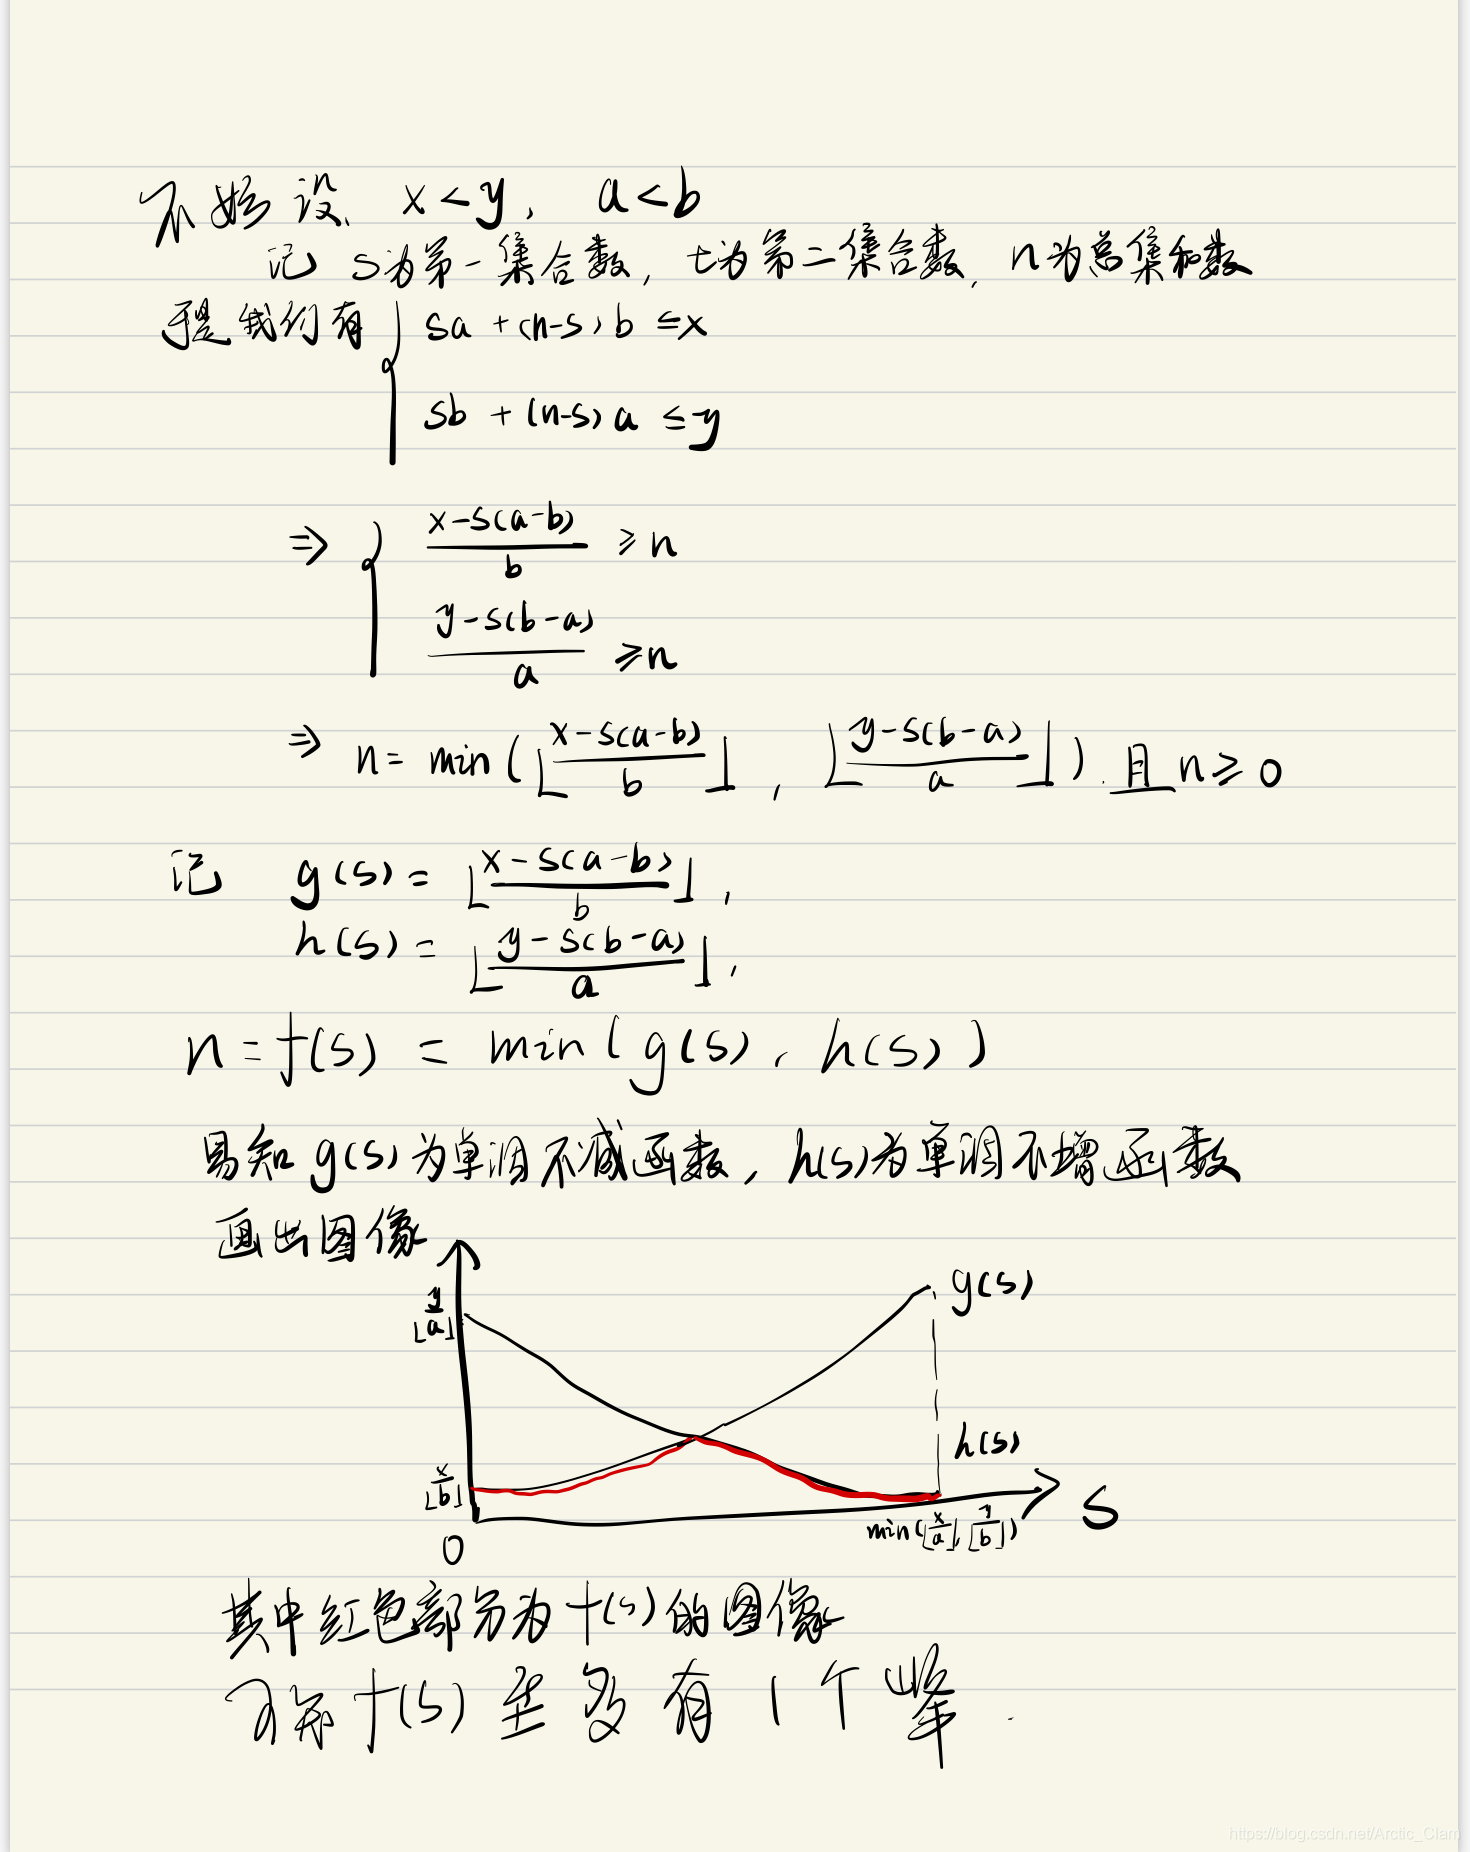 不妨设 x<y, a<b
记 s为第一集合数, t为第二集合数, n为总集和数
于是我们有 { sa + (n-s)b ≤x
sb + (n-s)a ≤y
⇒ { (x-s(a-b))/b ≥n
(y-s(b-a))/a ≥n
⇒ n= min(⌊(x-s(a-b))/b⌋, ⌊(y-s(b-a))/a⌋). 且 n≥0
记 g(s)= ⌊(x-s(a-b))/b⌋,
h(s)= ⌊(y-s(b-a))/a⌋,
n=f(s) = min(g(s), h(s))
易知 g(s)为单调不减函数, h(s)为单调不增函数
画出图像
g(s)
⌊y/a⌋
h(s)
⌊x/b⌋
s
min(⌊x/a⌋, ⌊y/b⌋)
0
其中红色部分为 f(s)的图像
可知 f(s)至多有1个峰.
https://blog.csdn.net/Arctic_Clam